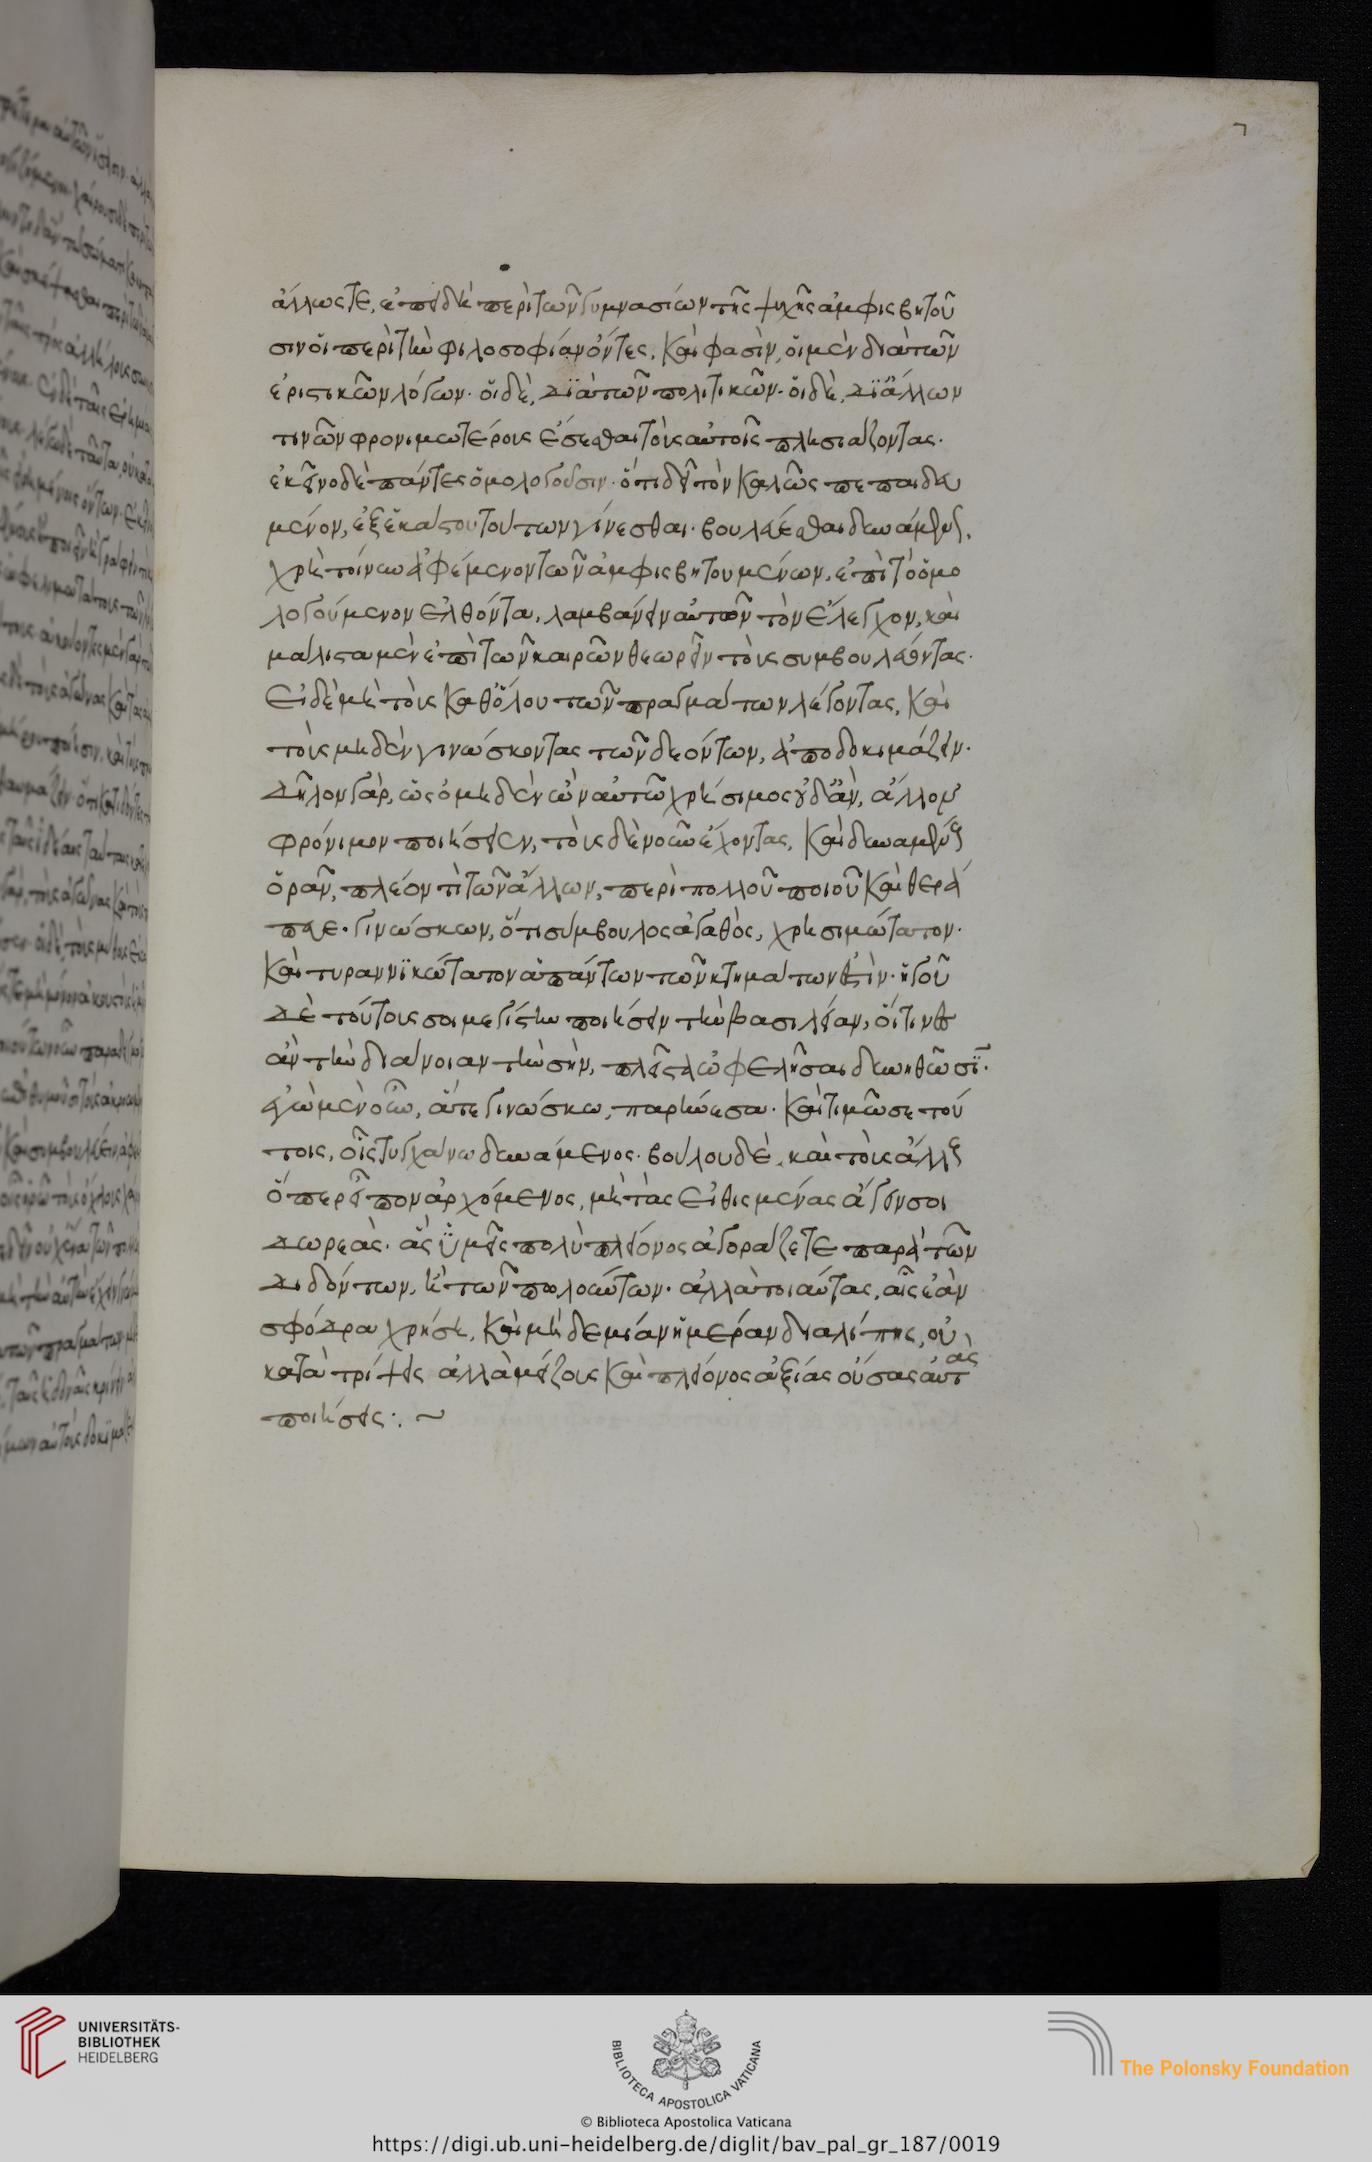 7
ἄλλως τε, ἐπειδὴ περὶ τῶν γυμνασίων τῆς ψυχῆς ἀμφισβητοῦ
σιν οἱ περὶ τὴν φιλοσοφίαν ὄντες. καί φασιν, οἱ μὲν διὰ τῶν
ἐριστικῶν λόγων· οἱ δὲ, διὰ τῶν πολιτικῶν· οἱ δὲ, δι' ἄλλων
τινῶν φρονιμωτέρους ἔσεσθαι τοὺς αὐτοῖς πλησιάζοντας·
ἐκεῖνο δὲ πάντες ὁμολογοῦσιν· ὅτι δεῖ τὸν καλῶς πεπαιδευ
μένον, ἐξ ἑκάστου τούτων γίνεσθαι βουλεύεσθαι δυνάμενον.
χρὴ τοίνυν ἀφέμενον τῶν ἀμφισβητουμένων, ἐπὶ τὸ ὁμο
λογούμενον ἐλθόντα, λαμβάνειν αὐτῶν τὸν ἔλεγχον, καὶ
μάλιστα μὲν ἐπὶ τῶν καιρῶν θεωρεῖν τοὺς συμβουλεύοντας·
εἰ δὲ μὴ τοὺς καθόλου τῶν πραγμάτων λέγοντας, καὶ
τοὺς μηδὲν γινώσκοντας τῶν δεόντων, ἀποδοκιμάζειν·
δῆλον γὰρ, ὡς ὁ μηδὲν ὢν αὑτῷ χρήσιμος οὐδ' ἂν, ἄλλον
φρόνιμον ποιήσειεν, τοὺς δὲ νοῦν ἔχοντας, καὶ δυναμένους
ὁρᾶν, πλέον τι τῶν ἄλλων, περὶ πολλοῦ ποιοῦ καὶ θερά
πευε· γινώσκων, ὅτι σύμβουλος ἀγαθὸς, χρησιμώτατον·
καὶ τυραννικώτατον ἁπάντων τῶν κτημάτων ἐστὶν· ἡγοῦ
δὲ τούτους σοι μεγίστην ποιήσειν τὴν βασιλείαν, οἵτινες
ἂν τὴν διάνοιαν τὴν σὴν, πλεῖστα ὠφελῆσαι δυνηθῶσι·
ἐγὼ μὲν οὖν, ἅτε γινώσκω, παρῄνεσα· καὶ τιμῶ σε τού
τοις, οἷς τυγχάνω δυνάμενος· βούλου δὲ, καὶ τοὺς ἄλλους
ὅπερ εἶπον ἀρχόμενος, μὴ τὰς εἰθισμένας ἄγειν σοι
δωρεὰς· ἃς ὑμεῖς πολὺ πλείονος ἀγοράζετε παρὰ τῶν
διδόντων, ἢ τῶν πωλούντων· ἀλλὰ τοιαύτας, αἷς ἐὰν
σφόδρα χρήσῃ, καὶ μηδεμίαν ἡμέραν διαλίπῃς, οὐ
κατατρίψεις ἀλλὰ μείζους καὶ πλείονος ἀξίας οὔσας αὐτὰς
ποιήσεις :. ~
UNIVERSITÄTS-
BIBLIOTHEK
HEIDELBERG
BIBLIOTECA APOSTOLICA VATICANA
The Polonsky Foundation
© Biblioteca Apostolica Vaticana
https://digi.ub.uni-heidelberg.de/diglit/bav_pal_gr_187/0019